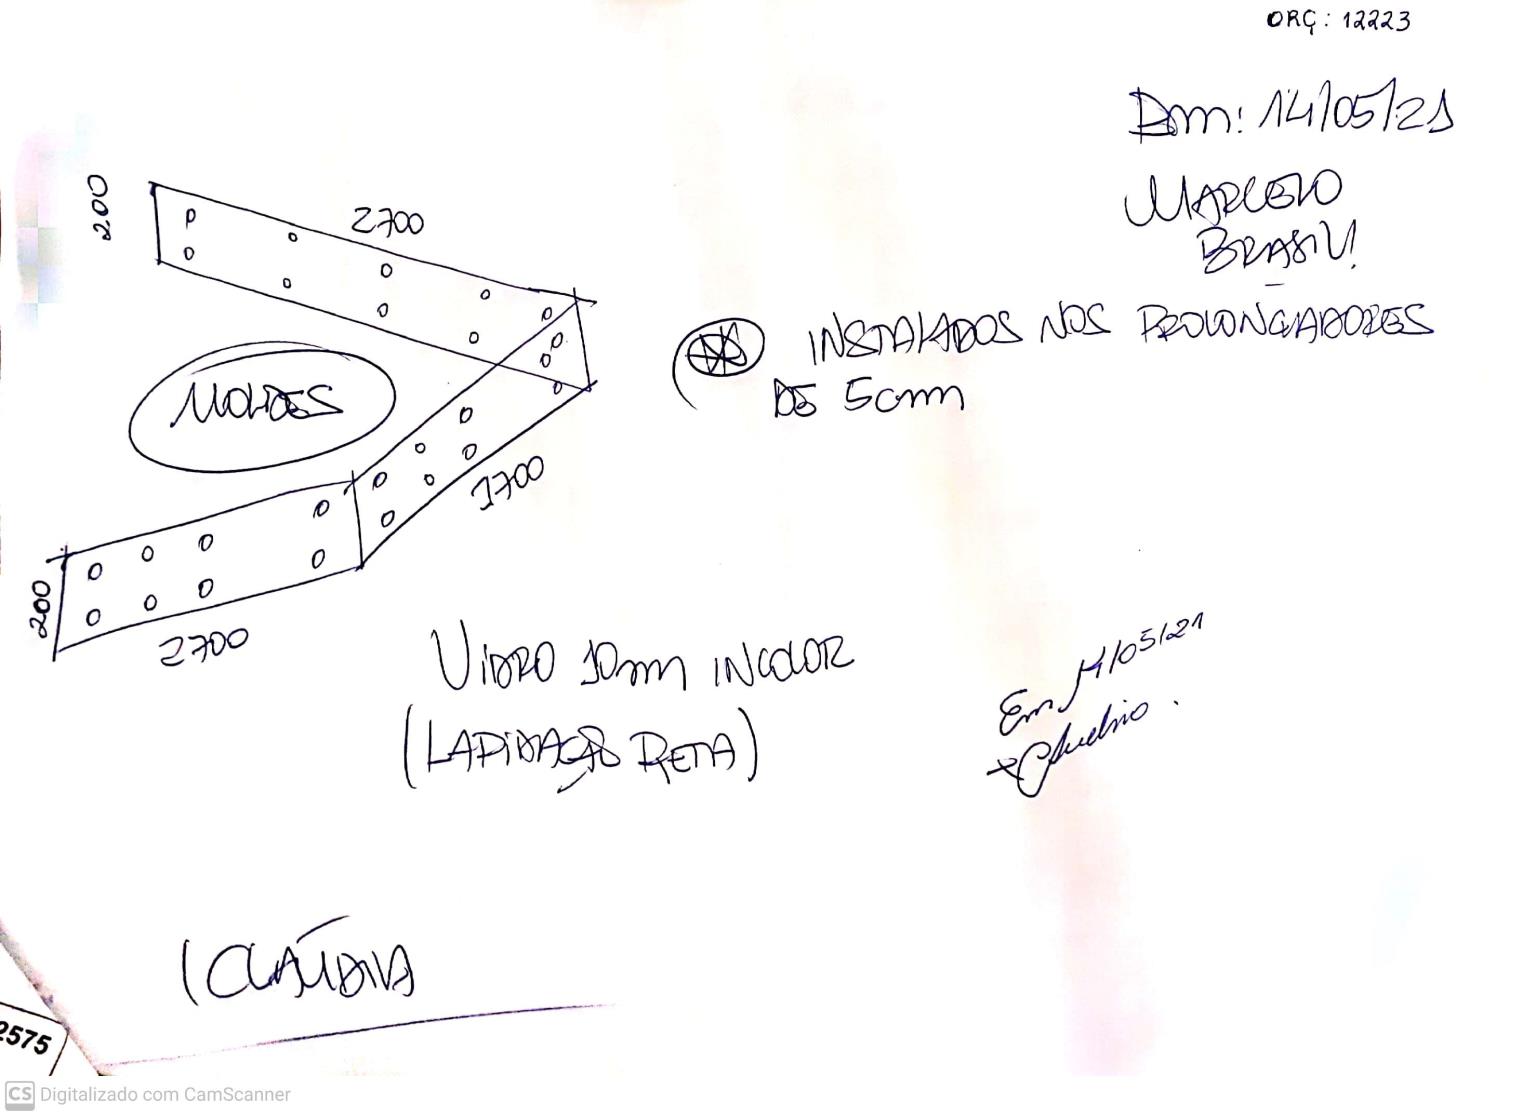 ORÇ: 12223
Bm: 14/05/21
MARCELO
BRASIL!
200
2700
INSTALADOS NOS PROLONGADORES
DE 5cm
MOLDES
1700
200
2700
VIDRO 10mm INCOLOR
(LAPIDAÇÃO RETA)
Em 14/05/21
CLAÚDIA
2575
CS Digitalizado com CamScanner